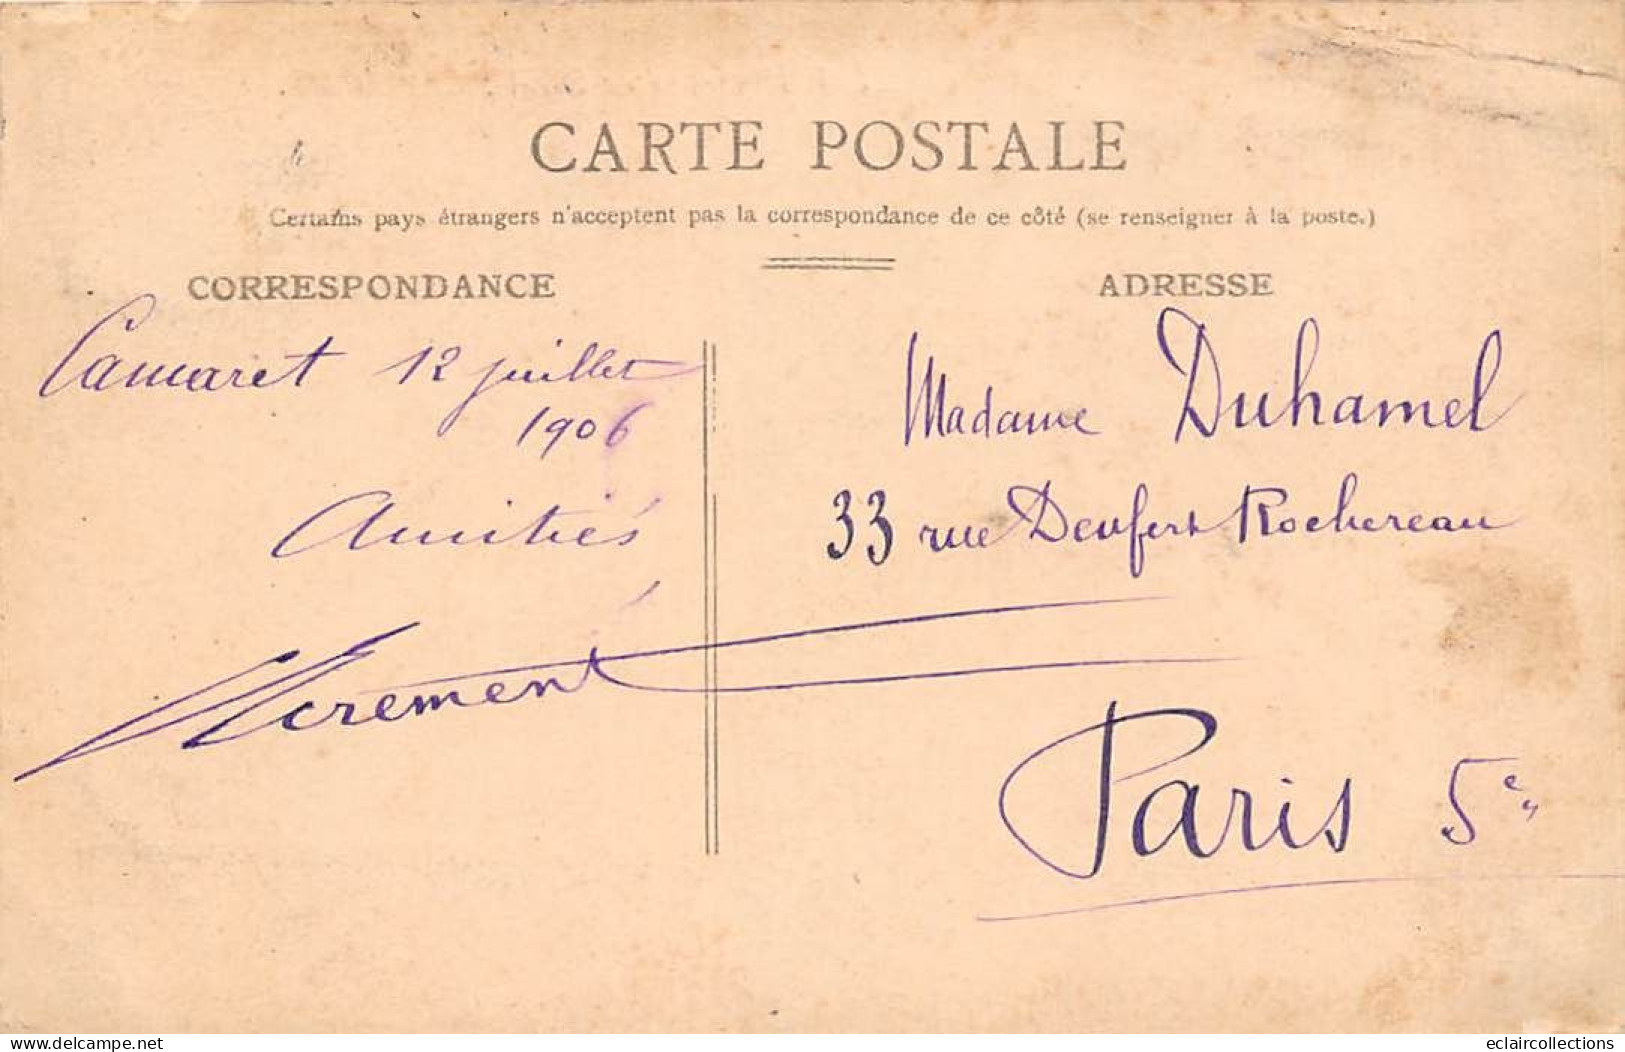 CARTE POSTALE
Certains pays étrangers n'acceptent pas la correspondance de ce côté (se renseigner à la poste.)
CORRESPONDANCE
Camaret 12 juillet
1906
Amitiés
ADRESSE
Madame Duhamel
33 rue Denfert Rochereau
Paris 5e
www.delcampe.net
eclaircollections